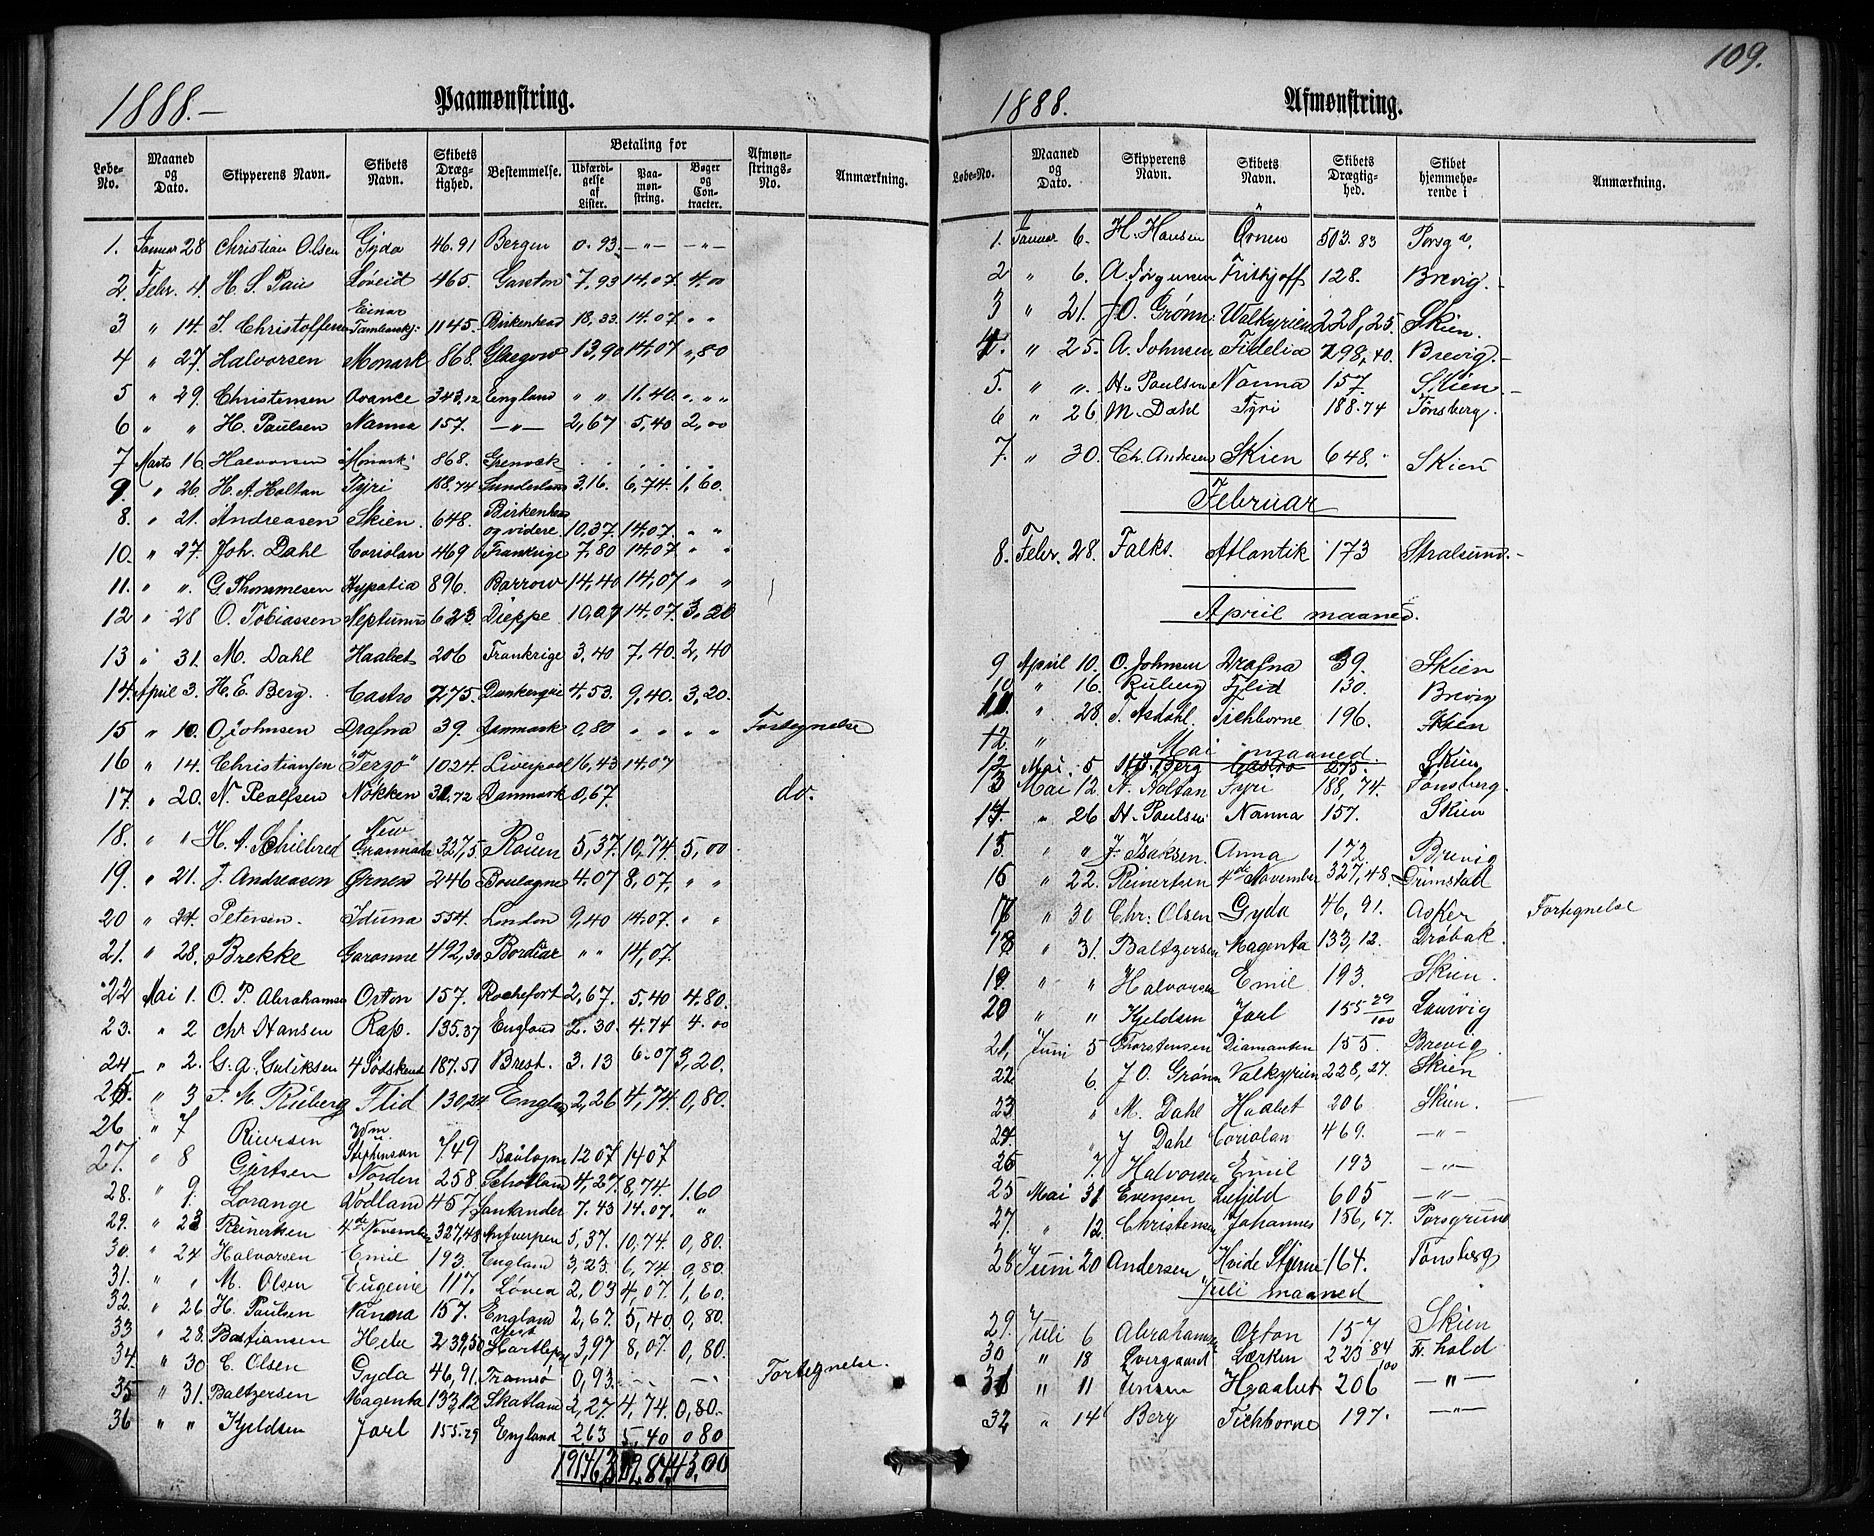 109.
1888.-
Paamønstring.
Løbe-No. Maaned og Dato. Skipperens Navn. Skibets Navn. Skibets Dræg-tighed. Bestemmelse. Betaling for Udfærdi-gelse af Lister. Paa-møn-string. Bøger og Con-tracter. Afmøn-strings-No. Anmærkning.
1. Januar 28 Christian Olsen Gyda 46.91 Bergen 0.93. -"- -"-
2. Febr. 4. H. S. Paus Løveid 465. Garston 7,93 14,07. 4,00
3 " 14. J. Christoffersen Einar Tambarskj: 1145. Birkenhead 18,33. 14.07. " "
4 " 27. Halvorsen Monark 868. Glasgow 13,90 14,07 ",80
5 " 29. Christensen Avance 343.12 England " " 11.40. " " "
6 " " H. Paulsen Nanna 157. -"- 2,67 5,40 2,00
7 Marts 16. Halvorsen "Monark" 868. Grenock . . .
9. " 26 H. A. Holtan Tyri 188.74 Sunderland 3,16. 6,74. 1,60.
8. " 21. Andreasen Skien. 648. Birkenhead og videre 10,37. 14,07. " "
10. " 27. Joh. Dahl Coriolan 469 Frankrige 7,80 14,07. " "
11. " ". G. Thommesen Hypatia 896. Barrow 14,40 14,07 " "
12 " 28 O. Tobiassen Neptunus 623. Dieppe 10,07 14,07. 3,20
13 " 31. M. Dahl Haabet 206 Frankrige 3,40 7,40. 2,40
14. April 3. H. E. Berg. Castro 275. Dunkerque 4.53. 9,40. 3,20.
15 " 10. O. Johnsen Drafna 39. Danmark 0,80 " " " Fortegnelse
16 " 14. Christiansen "Terzo" 1024. Liverpool 16,43 14.07
17. " 20. N. Rolfsen Nökken 31.72 Danmark 0,67 do.
18. " " H. A. Schilbred New Grannada 327,5. Rouen 5,37. 10,74. 5,00
19. " 21. J. Andreasen Ørnen 246 Boulogne 4.07 8,07. " "
20 " 24. Petersen. Iduna 554. London 9,40 14.07. " "
21. " 28. Brekke Garonne 492,30 Bordeax " " 14,07.
22 Mai 1. O. P. Abrahamsen Orton 157. Rochefort 2,67. 5.40 4.80.
23. " 2 Chr. Hansen Rap. 135.37 England 2.30. 4.74 4.00
24 " 2. G. A. Guliksen 4 Södskend 187.51 Brest. 3.13 6.07 3,20.
25. " 3 J. M. Ruberg Flid 130,24 England 2,26 4,74. 0,80.
26 " 7 Riersen Wm Stephenson 749 Boulogne 1207 1407
27. " 8 Gjertsen Norden 258. Schotland 4,27. 8,74. 1.60
28. " 9. Lorange Nordland 457. Santander 7.43 14.07. "
29. " 23 Reinertsen 4de November 327,48 Antverpen 5,37. 10,74. 0,80.
30. " 24 Halvorsen Emil 193. England 3,23. 6,74. 0,80.
31. " " M. Olsen Eugenie 117. 2,03 4,07. 1,60.
32. " 26 H. Paulsen Nanna 157. England 2,67. 5,40 0,80.
33 " 28. Bastiansen Hebe 239,50 West Hartlepool 3,97 8,07. 0,80.
34. " 30 C. Olsen Gyda 46,91. Tromsö 0,93. -"- -"- Fortegnelse.
35 " 31. Baltzersen Magenta 133,12 Skotland 2,27. 4,74. 0,80.
36 " " Kjeldsen Jarl 155.29 England 2.63 5,40 0 80
43,00
1888.
Afmønstring.
Løbe-No. Maaned og Dato. Skipperens Navn. Skibets Navn. Skibets Drægtig-hed. Skibet hjemmehø-rende i Anmærkning.
1. Januar 6. H. Hansen Örnen 503.83 Porsg.
2 " 6. A. Jörgensen Frithjoff 128. Brevig.
3 " 21. J. O. Grønn: Walkyrien 228,25. Skien.
4. " 25. A. Johnsen Fidelia 298,40. Brevig.
5. " ". H. Paulsen Nanna 157. Skien
6 " 26 M. Dahl Tyri 188.74 Tønsberg.
7. " 30. Ch. Andersen Skien 648. Skien
Februar
8. Febr. 28. Falks. Atlantik 173 Stralsund.
April maaned.
9 April 10. O. Johnsen Drafna 39. Skien
10 " 16. Ruberg Flid 130. Brevig
11. " 28. T. Asdahl. Tichborne 196. Skien
12. "
Mai maaned.
12 Mai. 5 H. E. Berg Castro 275. Skien
13 Mai 12. A. Holtan Tyri 188,74. Tønsberg.
14. " 26 H. Paulsen Nanna 157. Skien
15. " " J. Isaksen. Anna 172. Brevig
16 " 22. Reinertsen 4de November 327,48. Grimstad
17 " 30 Chr. Olsen Gyda 46,91. Asker Fortegnelse
18 " 31. Baltzersen Magenta 133,12. Dröbak.
19 " " Halvorsen Emil 193. Skien.
20 " " Kjeldsen Jarl 155 29/100 Laurvig
21, Juni 5 Thorstensen Diamanten 155. Brevig.
22 6. J. O. Grønn Valkyrien 228,27. Skien
23 " M. Dahl Haabet 206 Skien.
24. " J Dahl Coriolan 469. -"-
26 7. Halvorsen Emil 193 -"-
25 Mai 31 Evensen Lufjeld 605 -"-
27. " 12. Christensen Johannes 156,67. Porsgrund
28 Juni 20 Andersen Hvide Stjerne 164. Tønsberg
Juli maaned
29. Juli 6 Abrahamsen Orton 157. Skien
30 " 18 Overgaard Lærken 223 84/100 Fr. hald
31 " 11 Jensen Haabet 206 -"-
32 " 14 Berg Tichborne 197. -"-